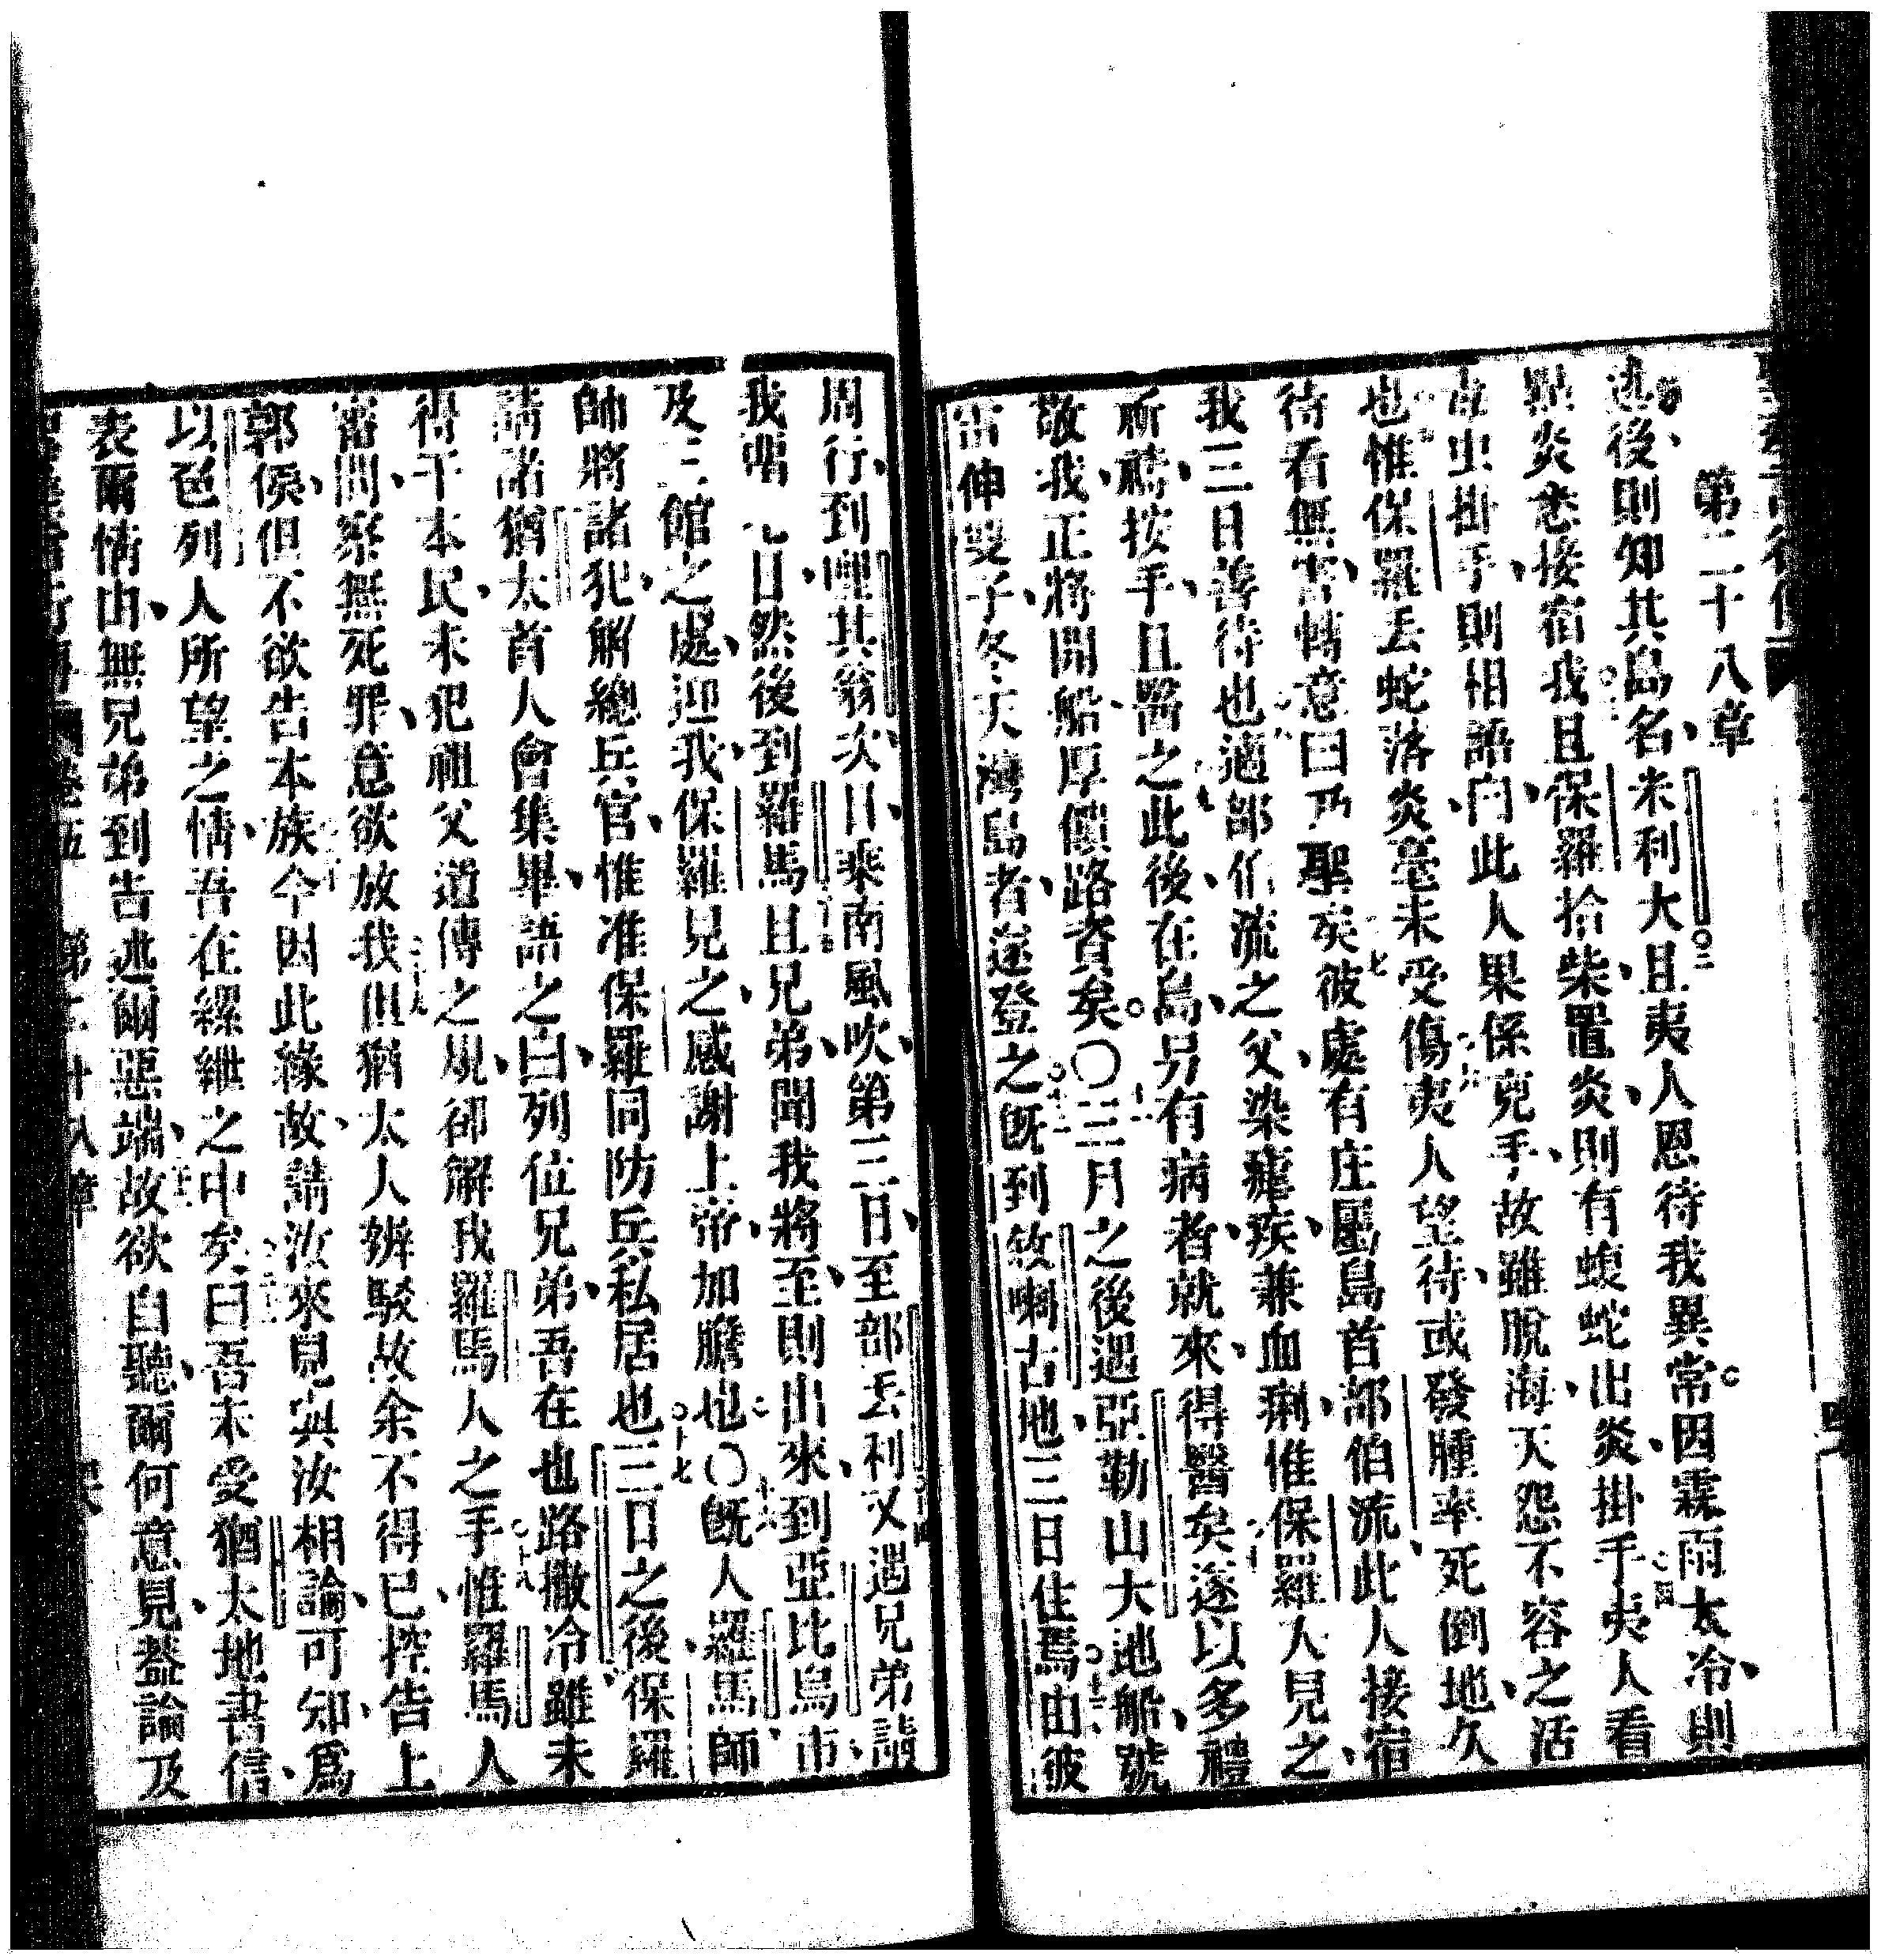 第二十八章
逃後則知其島名米利大且夷人恩待我異常因霖雨太冷則
點炎悉接宿我且保羅拾柴置炎則有蝮蛇出炎掛手夷人看
毒虫掛手則相語曰此人果係兇手故雖脫海天怨不容之活
也惟保羅丟蛇落炎毫未受傷夷人望待或發腫率死倒地久
待看無害轉意曰乃聖矣彼處有庄屬島首部伯流此人接宿
我三日善待也適部伯流之父染瘧疾兼血痢惟保羅入見之
祈禱按手且醫之此後在島另有病者就來得醫矣遂以多禮
敬我正將開船厚饋路資矣〇三月之後遇亞勒山大地船號
宙伸雙子冬天灣島者遂登之既到敘喇古地三日住焉由彼
周行到哩其翁次日乘南風吹第三日至部丟利又遇兄弟請
我留七日然後到羅馬且兄弟聞我將至則出來到亞比烏市
及三館之處迎我保羅見之感謝上帝加膽也〇既入羅馬師
帥將諸犯解總兵官惟准保羅同防兵私居也三日之後保羅
請諸猶太首人會集畢語之曰列位兄弟吾在也路撒冷雖未
得干本民未犯祖父遺傳之規卻解我羅馬人之手惟羅馬人
審問察無死罪意欲放我但猶太人辨駁故余不得已控告上
郭侯但不欲告本族今因此緣故請汝來見與汝相論可知爲
以色列人所望之情吾在縲紲之中矣曰吾未受猶太地書信
表爾情由無兄弟到告述爾惡端故欲自聽爾何意見葢論及